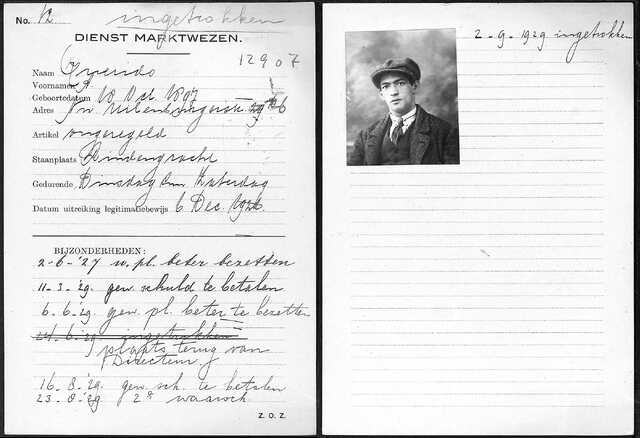 No. 12 ingetrokken
DIENST MARKTWEZEN.
12907
Naam Querido
Voornamen
Geboortedatum 18 Oct. 1897
Adres
Artikel ongeregeld
Staanplaats Lindengracht
Gedurende Dinsdag Zaterdag
Datum uitreiking legitimatiebewijs 6 Dec. 1926.
BIJZONDERHEDEN:
2-6-'27 w. pl. beter bezetten
11-3-'29. gew. schuld te betalen
6-6-'29 gew. pl. beter te bezetten
24.6.'29 ingetrokken
plaats terug van
Directeur
16-8-'29. gew. sch. te betalen
23-8-'29 2e waarsch
Z. O. Z.
2-9-1929 ingetrokken